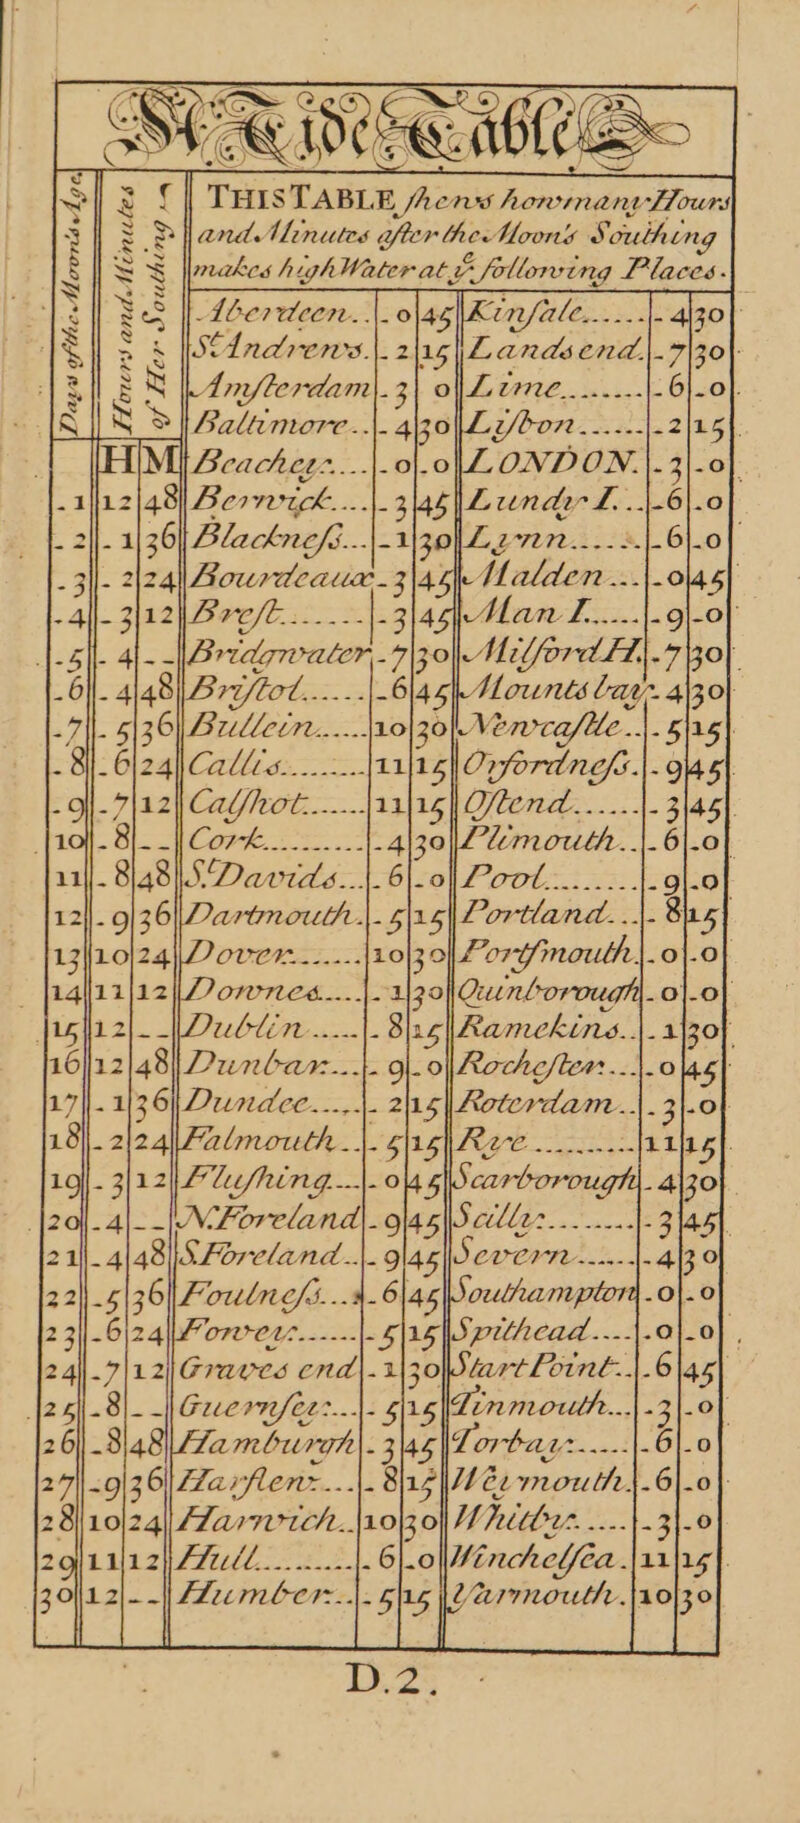 A Tide Table
Days of the Moon's Age
Hours and Minutes
of Her Southing
THIS TABLE shews how many Hours
and Minutes after the Moon's Southing
makes high Water at yᵉ following Places.
Aberdeen..|-0|45|Kinsale......|-4|30
Sᵗ Andrews.|-2|15|Landsend.|-7|30
Amsterdam|-3|0|Lime.........|-6|-0
Baltimore..|-4|30|Lisbon......|-2|15
H|M|Beachey....|-0|-0|LONDON.|-3|-0
-1|12|48|Berwick....|-3|45|Lundy I...|-6|-0
-2|-1|36|Blackness...|-1|30|Lynn......|-6|-0
-3|-2|24|Bourdeaux|-3|45|Malden...|-0|45
-4|-3|12|Brest.......|-3|45|Man I......|-9|-0
-5|-4|--|Bridgwater|-7|30|Milford H.|-7|30
-6|-4|48|Bristol......|-6|45|Mounts bay|-4|30
-7|-5|36|Bullein......|10|30|Newcastle..|-5|15
-8|-6|24|Callis.........|11|15|Orfordness.|-9|45
-9|-7|12|Calshot.......|11|15|Ostend.......|-3|45
10|-8|--|Cork...........|-4|30|Plimouth..|-6|-0
11|-8|48|Sᵗ Davids...|-6|-0|Pool.........|-9|-0
12|-9|36|Dartmouth.|-5|15|Portland...|-8|15
13|10|24|Dover.......|10|30|Portsmouth.|-0|-0
14|11|12|Downes....|-1|30|Quinborough|-0|-0
15|12|--|Dublin.....|-8|15|Ramekins..|-1|30
16|12|48|Dunbar...|-9|-0|Rochester...|-0|45
17|-1|36|Dundee.....|-2|15|Roterdam..|-3|-0
18|-2|24|Falmouth..|-5|15|Rye..........|11|15
19|-3|12|Flushing...|-0|45|Scarborough|-4|30
20|-4|--|N. Foreland|-9|45|Scilly.........|-3|45
21|-4|48|S Foreland..|-9|45|Severn......|-4|30
22|-5|36|Foulness...|-6|45|Southampton|-0|-0
23|-6|24|Fowey.......|-5|15|Spithead....|-0|-0
24|-7|12|Graves end|-1|30|Start Point..|-6|45
25|-8|--|Guernsey...|-5|15|Tinmouth...|-3|-0
26|-8|48|Hamburgh|-3|45|Torbay......|-6|-0
27|-9|36|Harflew....|-8|15|Weymouth.|-6|-0
28|10|24|Harwich..|10|30|Whitby.....|-3|-0
29|11|12|Hull..........|-6|-0|Winchelsea.|11|15
30|12|--|Humber...|-5|15|Yarmouth.|10|30
D.2.